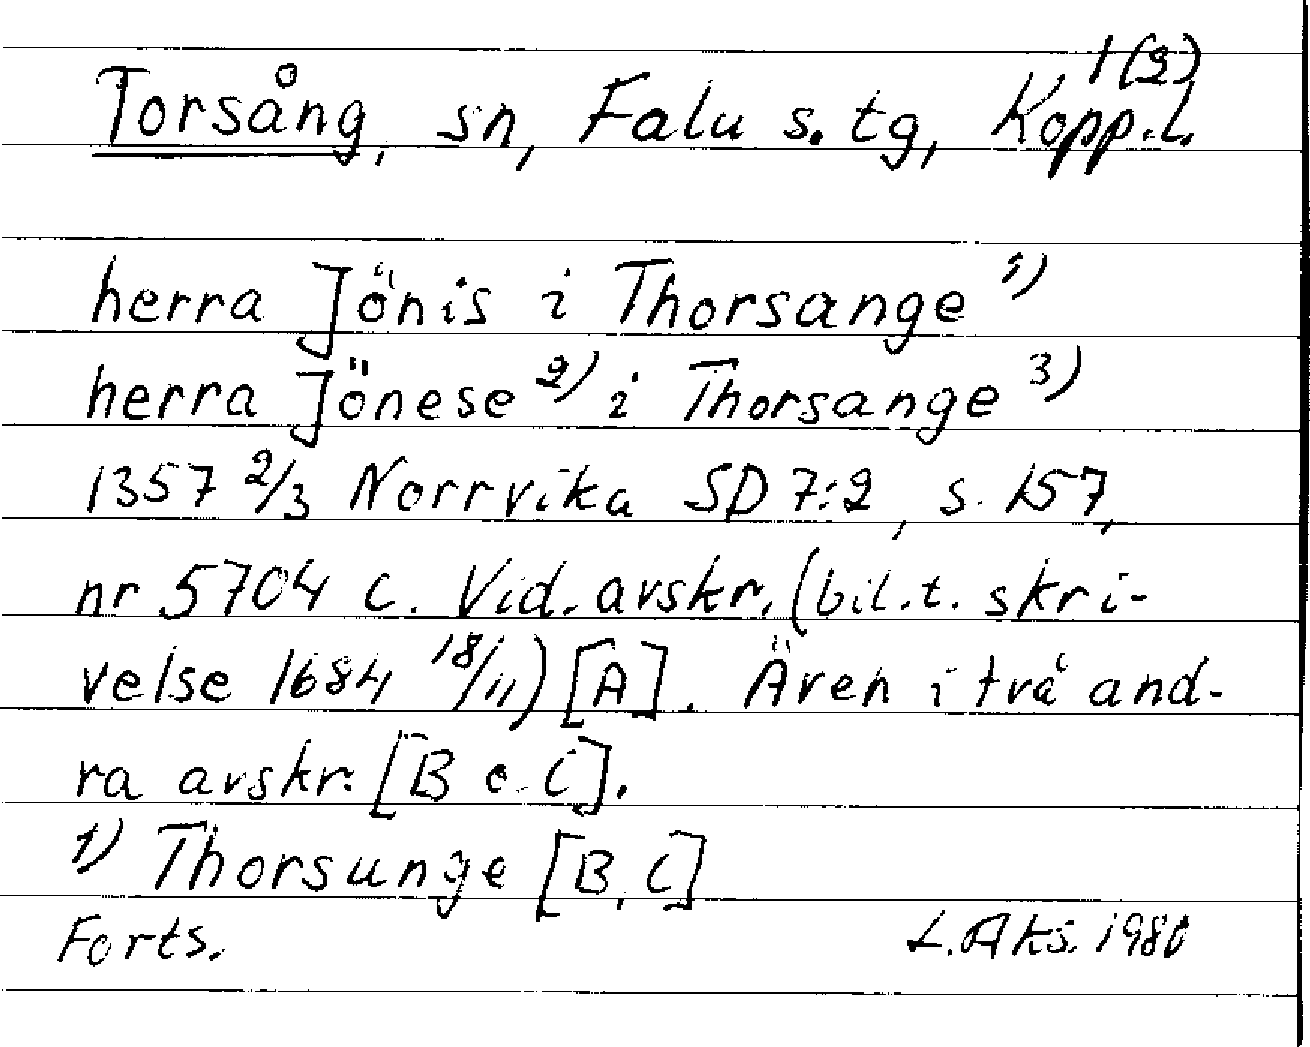 1(2)
Torsång, sn, Falu s. tg, Kopp.l.
herra Jönis i Thorsange 1)
herra Jönese 2) i Thorsange 3)
1357 2/3 Norrvika SD 7:2, s. 157,
nr 5704 c. Vid. avskr. (bil. t. skri-
velse 1684 18/11) [A]. Även i två and-
ra avskr. [B o. C].
1) Thorsunge [B, C]
Forts. L. Aks. 1980